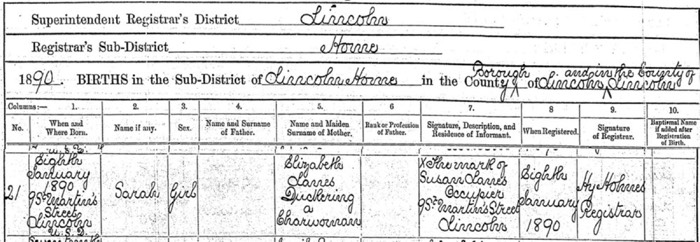 Superintendent Registrar's District Lincoln
Registrar's Sub-District Home
1890. BIRTHS in the Sub-District of Lincoln Home in the County Borough of Lincoln and in the County of Lincoln
Columns:— 1. 2. 3. 4. 5. 6 7. 8 9. 10.
No. When and Where Born. Name if any. Sex. Name and Surname of Father. Name and Maiden Surname of Mother. Rank or Profession of Father. Signature, Description, and Residence of Informant. When Registered. Signature of Registrar. Baptismal Name if added after Registration of Birth.
21
Eighth
January
1890
9 St. Martin's
Street
Lincoln
U.S.D.
Sarah
Girl
Elizabeth
Duckering
a
Charwoman
X The mark of
Susan
Occupier
9 St. Martin's Street
Lincoln
Eighth
January
1890
Hy Holmes
Registrar